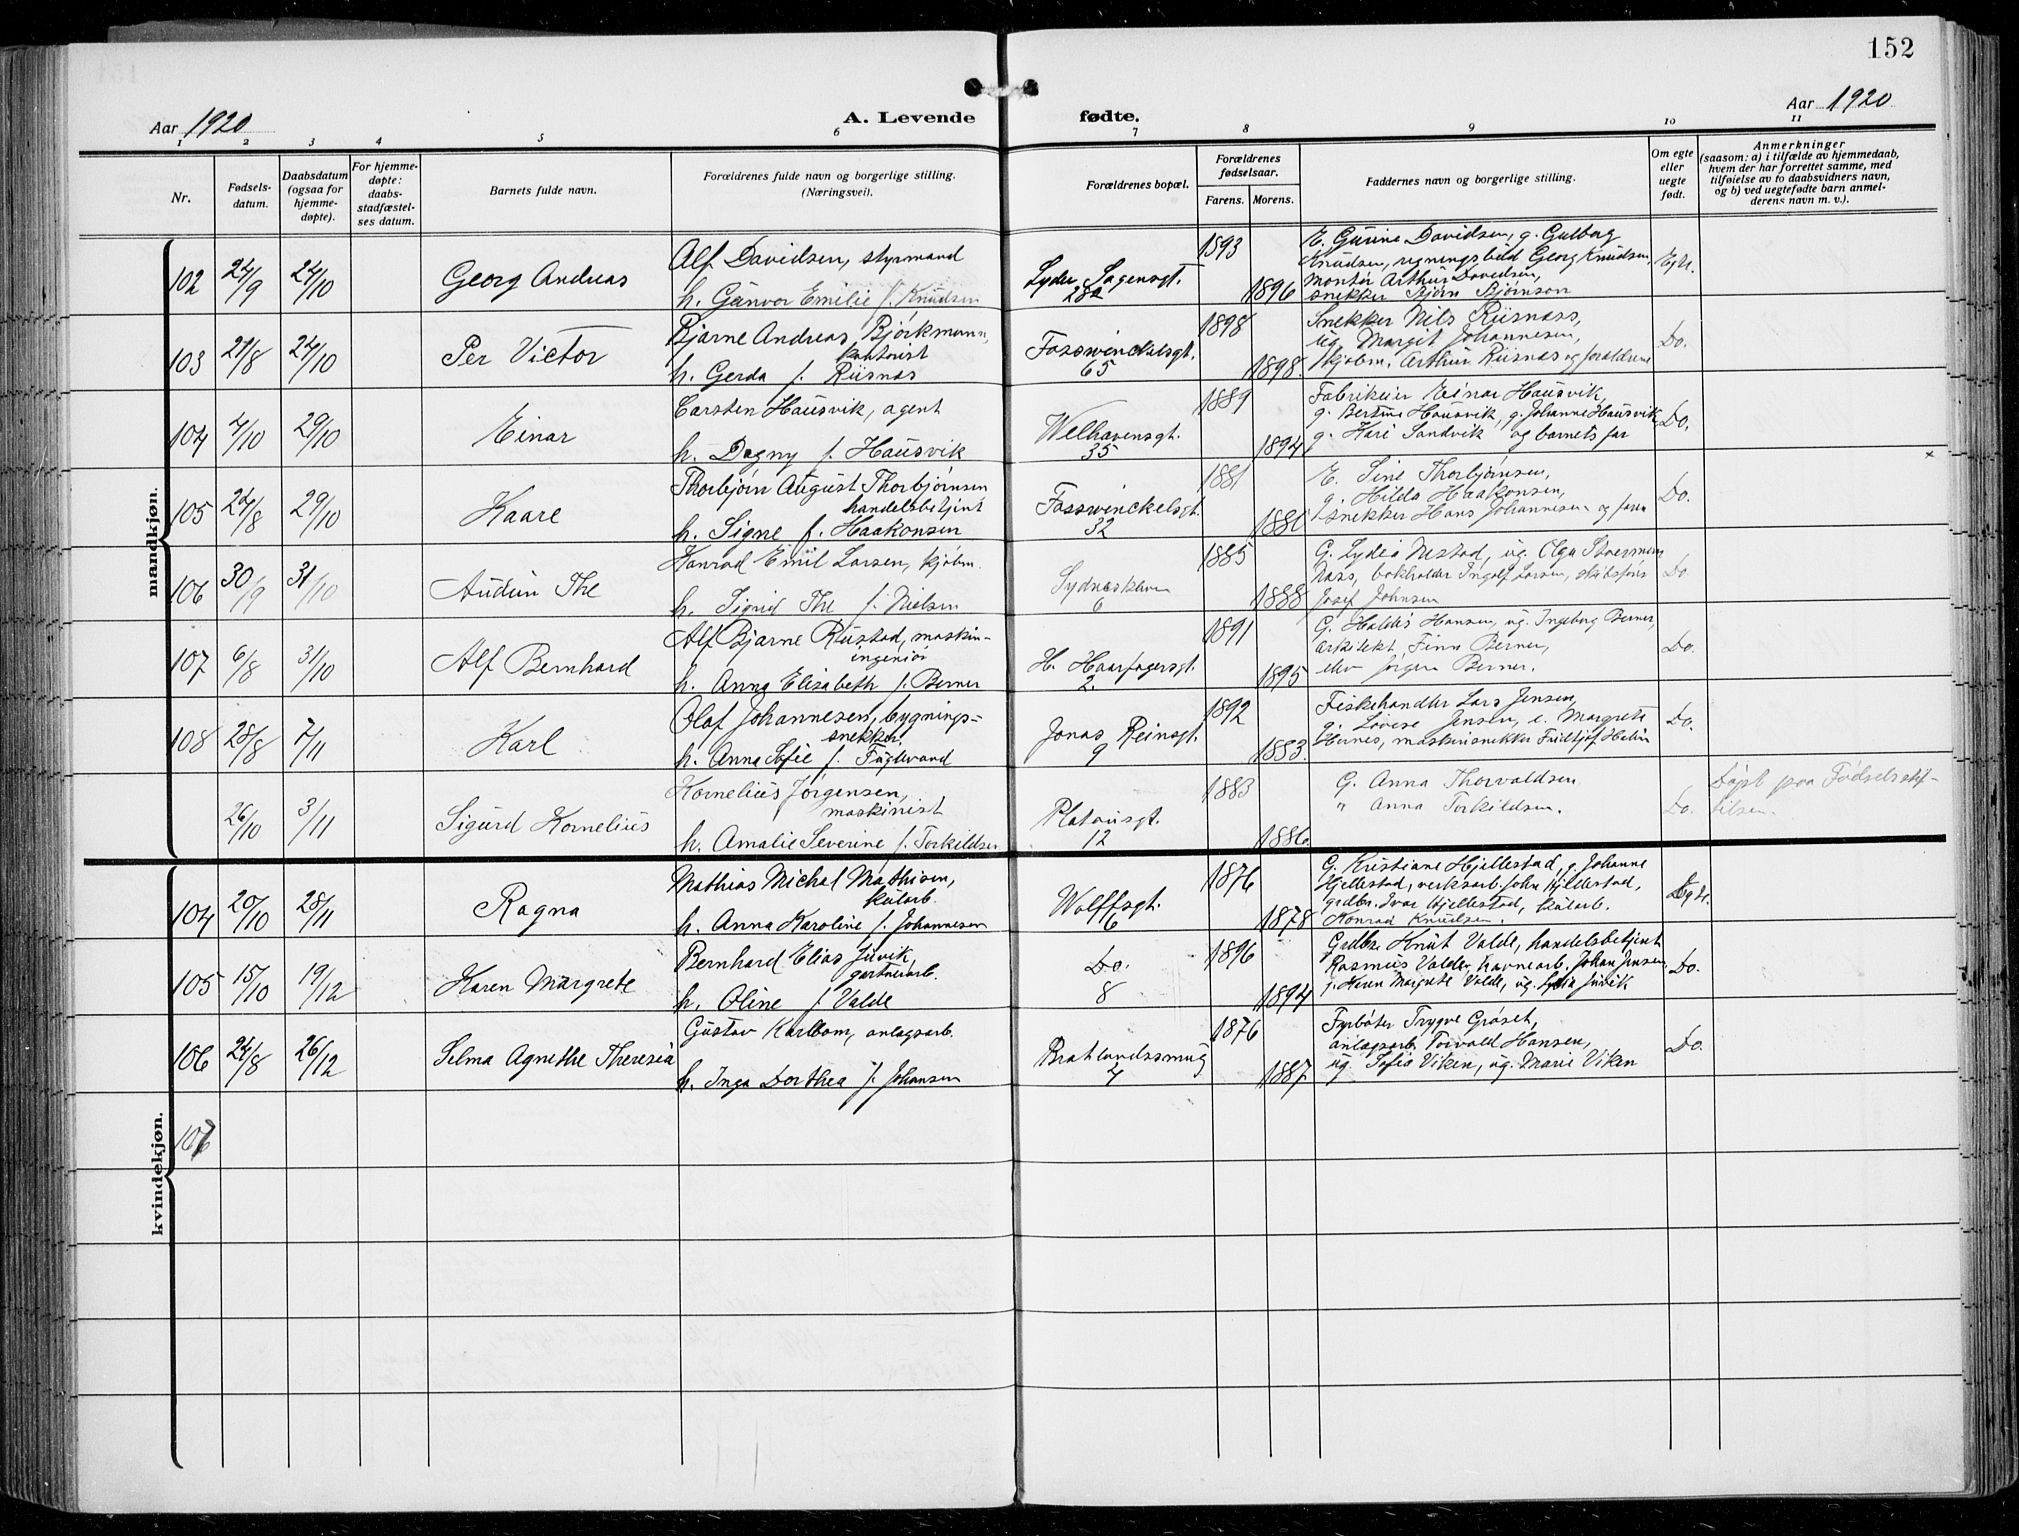 152
Aar 1920
A. Levende fødte.
Aar 1920
1 2 3 4 5 6 7 8 9 10 11
Nr.
Fødsels-
datum.
Daabsdatum
(ogsaa for
hjemme-
døpte).
For hjemme-
døpte:
daabs-
stadfæstel-
ses datum.
Barnets fulde navn.
Forældrenes fulde navn og borgerlige stilling.
(Næringsvei).
Forældrenes bopæl.
Forældrenes
fødselsaar.
Farens. Morens.
Faddernes navn og borgerlige stilling.
Om egte
eller
uegte
født.
Anmerkninger
(saasom: a) i tilfælde av hjemmedaab,
hvem der har forrettet samme, med
tilføielse av to daabsvidners navn,
og b) ved uegtefødte barn anmel-
derens navn m. v.).
mandkjøn.
102 24/9 24/10 Georg Andreas
Alf Davidsen, styrmand
h. Gunvor Emilie f. Knudsen
Lyder Sagensgt.
28a
1893
1896
E. Gurine Davidsen, g. Gulborg
Knudsen, rygningsbud Georg Knudsen,
Montør Arthur Davidsen,
snekker Bjørn Bjørnson
Egte.
103 21/8 24/10 Per Victor
Bjarne Andreas Bjørkmann,
kontorist
h. Gerda f. Riisnæs
Fosswinckelsgt.
65
1898
1898.
Snekker Nils Riisnæss,
ug. Margit Johannesen,
kjøbm. Arthur Riisnæs og forældrene
Do.
104 4/10 29/10 Einar
Carsten Hausvik, agent
h. Dagny f. Hausvik
Welhavensgt.
35
1889
1894
Fabrikeier Einar Hausvik,
g. Bertine Hausvik, g. Johanne Hausvik
g. Kari Sandvik og barnets far
Do.
105 24/8 29/10 Kaare
Thorbjørn August Thorbjørnsen
handelsbetjent
h. Signe f. Haakonsen
Fosswinckelsgt.
32
1881
1886
E. Sine Thorbjørnsen,
g. Hilda Haakonsen,
snekker Hans Johannesen og faren
Do.
x
106 30/9 31/10 Audun The
Konrad Emil Larsen, kjøbm.
h. Sigrid The f. Nielsen
Sydneskleven
6
1885
1888
G. Lydia Nestad, ug. Olga Stoermann
Næss, bokholder Ingolf Larsen, skibsfører
Josef Johnsen
Do
107 6/8 31/10 Alf Bernhard
Alf Bjarne Rustad, maskin-
ingeniør
h. Anna Elisabeth f. Berner
H. Haarfagersgt.
2.
1891
1895
G. Haldis Hansen, ug. Ingeborg Berner,
arkitekt Finn Berner,
elev Jørgen Berner.
Do.
108 28/8 7/11 Karl
Olaf Johannesen, bygnings-
snekker.
h. Anna Sofie f. Fuglevand
Jonas Reinsgt.
9
1892
1883.
Fiskehandler Lars Jensen,
g. Lovise Jensen, e. Margrete
Hernes, maskinsnekker Fridtjof Helin
Do.
26/10 3/11 Sigurd Kornelius
Kornelius Jørgensen,
maskinist
h. Amalie Severine f. Torkildsen
Platousgt.
12
1883
1886
G. Anna Thorvaldsen
" Anna Torkildsen.
Do.
Døpt paa Fødselsstif-
telsen.
kvindekjøn.
104 20/10 28/11 Ragna
Mathias Michal Mathisen,
kularb.
h. Anna Karoline f. Johannesen
Wolffsgt.
6
1876
1878
G. Kristiane Hjellestad, g. Johanne
Hjellestad, verksarb. John Hjellestad,
grdbr. Ivar Hjellestad, kularb.
Konrad Knudsen.
Egte.
105 15/10 19/12 Karen Margrete
Bernhard Elias Juvik,
gartneriarb.
h. Oline f. Valde
Do.
8
1896
1894
Grdbr. Knut Valde, handelsbetjent
Rasmus Valde, havnearb. Johan Jensen,
g. Karen Margrete Valde, ug. Lydia Juvik
Do.
106 24/8 26/12 Selma Agnethe Theresia
Gustav Karlbom, anlagsarb.
h. Inga Dorthea f. Johansen
Bratlandssmug
4
1876
1887
Fyrbøter Trygve Grøset,
anlagsarb. Torvald Hansen,
ug. Sofia Viken, ug. Marie Viken
Do.
107